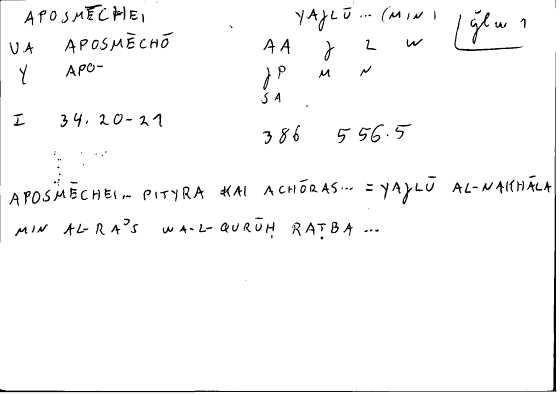 APOSMĒCHEI
YAJLŪ... (MIN)
ǧlw 1
VA APOSMĒCHŌ
AA J L W
Y APO-
JP M N
SA
I 34.20-21
386 556.5
APOSMĒCHEI... PITYRA KAI ACHŌRAS... = YAJLŪ AL-NAKHĀLA
MIN AL-RAʾS WA-L-QURŪḤ RAṬBA ...